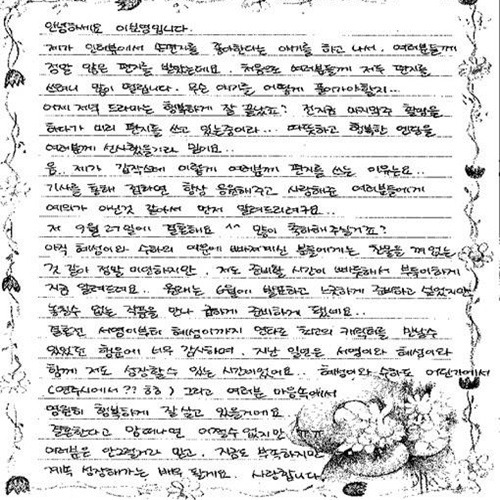 안녕하세요 이보영입니다.
제가 인터뷰에서 손편지를 좋아한다는 얘기를 하고 나서, 여러분들께
정말 많은 편지를 받았는데요 처음으로 여러분들께 저도 편지를
쓰려니 많이 떨립니다. 무슨 얘기를 어떻게 풀어가야할지...
어제 저녁 드라마는 행복하게 잘 끝났죠? 전 지금 마지막주 촬영을
하다가 미리 편지를 쓰고 있는중이라... 따뜻하고 행복한 엔딩을
여러분께 선사했을거라 믿어요..
음.. 제가 갑작스레 이렇게 여러분께 편지를 쓰는 이유는요..
기사를 통해 접하면 항상 응원해주고 사랑해준 여러분들에게
예의가 아닌것 같아서 먼저 알려드리려구요..
저 9월 27일에 결혼해요 ^^ 많이 축하해주실거죠?
아직 혜성이와 수하의 여운에 빠져계신 분들에게는 찬물을 껴 얹는
것 같아 정말 미안하지만, 저도 준비할 시간이 빠듯해서 부득이하게
지금 알려드려요.. 원래는 6월에 발표하고 느긋하게 준비하고 싶었지만
놓칠수 없는 작품을 만나 급하게 준비하게 됐네요..
결론은 서영이부터 혜성이까지 연타로 최고의 캐릭터를 만날수
있었던 행운에 너무 감사하며, 지난 일년은 서영이와 혜성이와
함께 저도 성장할수 있는 시간이었어요.. 혜성이와 수하도 어딘가에서
(연주시에서?? ㅎㅎ) 그리고 여러분 마음속에서
영원히 행복하게 잘 살고 있을거에요
결혼한다고 맘 떠나면 어쩔수 없지만 ㅠㅠ
여러분은 안그럴거라 믿고, 지금도 부족하지만
계속 성장해가는 배우 될게요.. 사랑합니다